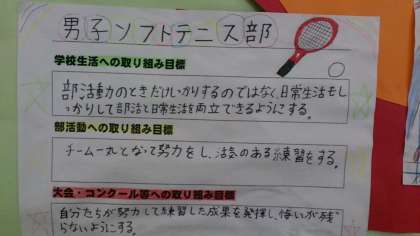 男子ソフトテニス部
学校生活への取り組み目標
部活動のときだけしっかりするのではなく、日常生活もし
っかりして部活と日常生活を両立できるようにする。
部活動への取り組み目標
チーム一丸となって努力をし、活気のある練習をする。
大会・コンクール等への取り組み目標
自分たちが努力して練習した成果を発揮し、悔いが残
らないようにする。